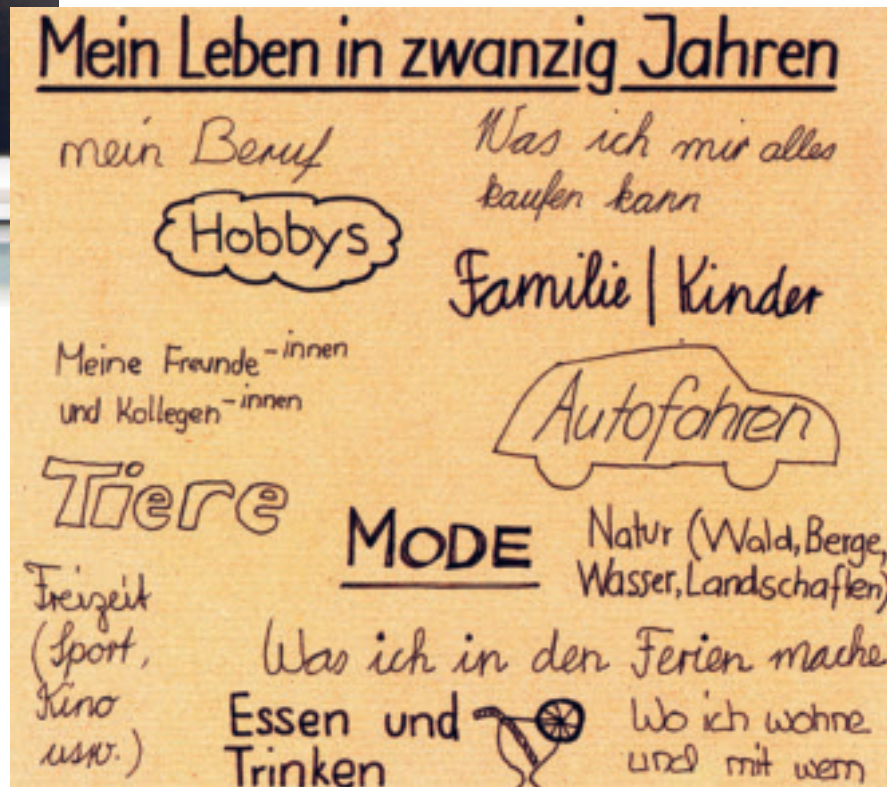 Mein Leben in zwanzig Jahren
mein Beruf
Was ich mir alles
kaufen kann
Hobbys
Familie | Kinder
Meine Freunde-innen
und Kollegen-innen
Autofahren
Tiere
MODE
Natur (Wald, Berge,
Wasser, Landschaften)
Freizeit
(Sport,
Kino
usw.)
Was ich in den Ferien mache
Essen und
Trinken
Wo ich wohne
und mit wem